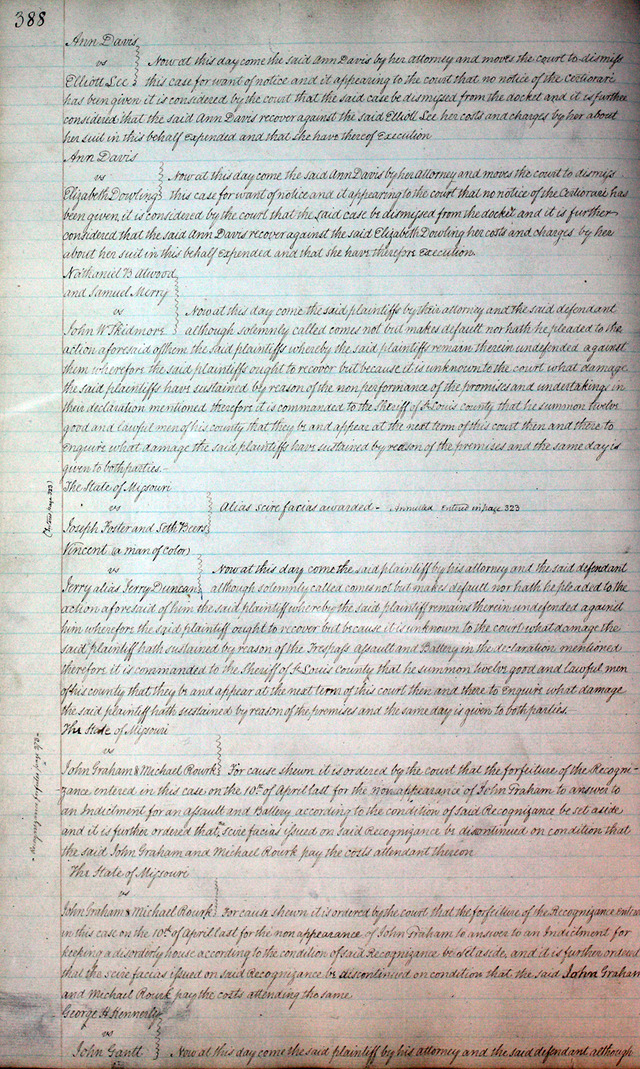 388
Ann Davis
vs
Now at this day come the said Ann Davis by her attorney and moves the court to dismiss
Elliott Lee
this case for want of notice and it appearing to the court that no notice of the certiorari
has been given it is considered by the court that the said case be dismissed from the docket and it is further
considered that the said Ann Davis recover against the said Elliott Lee her costs and charges by her about
her suit in this behalf expended and that she have thereof Execution
Ann Davis
vs
Now at this day come the said Ann Davis by her Attorney and moves the court to dismiss
Elizabeth Dowling
this case for want of notice and it appearing to the court that no notice of the Certiorari has
been given, it is considered by the court that the said case be dismissed from the docket and it is further
considered that the said Ann Davis recover against the said Elizabeth Dowling her costs and charges by her
about her suit in this behalf expended and that she have therefore Execution.
Nathaniel B Atwood
and Samuel Merry
vs
Now at this day come the said plaintiffs by their attorney and the said defendant
John W Skidmore
although solemnly called comes not but makes default nor hath he pleaded to the
action aforesaid of them the said plaintiffs whereby the said plaintiffs remain therein undefended against
them wherefore the said plaintiffs ought to recover but because it is unknown to the court what damage
the said plaintiffs have sustained by reason of the non performance of the promises and undertaking in
their declaration mentioned therefore it is commanded to the Sheriff of St Louis county that he summon twelve
good and lawful men of his county that they be and appear at the next term of this court then and there to
Enquire what damage the said plaintiffs have sustained by reason of the premises and the same day is
given to both parties.-
The State of Missouri
vs
Alias scire facias awarded - Annulled Entered in page 323
Joseph Foster and Seth Beers
Vincent (a man of color)
vs
Now at this day come the said plaintiff by his attorney and the said defendant
Jerry alias Jerry Duncan
although solemnly called comes not but makes default nor hath he pleaded to the
action aforesaid of him the said plaintiff whereby the said plaintiff remains therein undefended against
him wherefore the said plaintiff ought to recover but because it is unknown to the court what damage the
said plaintiff hath sustained by reason of the Trespass Assault and Battery in the declaration mentioned
therefore it is commanded to the Sheriff of St Louis county that he summon twelve good and lawful men
of his county that they be and appear at the next term of this court then and there to Enquire what damage
the said plaintiff hath sustained by reason of the premises and the same day is given to both parties.
The State of Missouri
vs
John Graham & Michael Rourk
For cause shewn it is ordered by the court that the forfeiture of the Recogni-
zance entered in this case on the 10th of April last for the non appearance of John Graham to answer to
an Indictment for an assault and Battery according to the condition of said Recognizance be set aside
and it is further ordered that scire facias issued on said Recognizance be discontinued on condition that
the said John Graham and Michael Rourk pay the costs attendant thereon
The State of Missouri
vs
John Graham & Michael Rourk
For cause shewn it is ordered by the court that the forfeiture of the Recognizance
in this case on the 10th of April last for the non appearance of John Graham to answer to an Indictment for
keeping a disorderly house according to the condition of said Recognizance be set aside, and it is further ordered
that the scire facias issued on said Recognizance be discontinued on condition that the said John Graham
and Michael Rourk pay the costs attending the same
George H Kennerly
vs
John Gantt
Now at this day come the said plaintiff by his attorney and the said defendant although